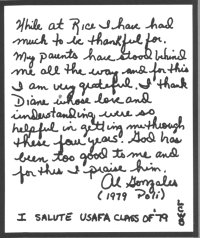 While at Rice I have had
much to be thankful for.
My parents have stood behind
me all the way and for this
I am very grateful. I thank
Diane whose love and
understanding were so
helpful in getting me through
these four years. God has
been too good to me and
for this I praise him.
Al Gonzales
(1979 Poli)
I SALUTE USAFA CLASS OF '79